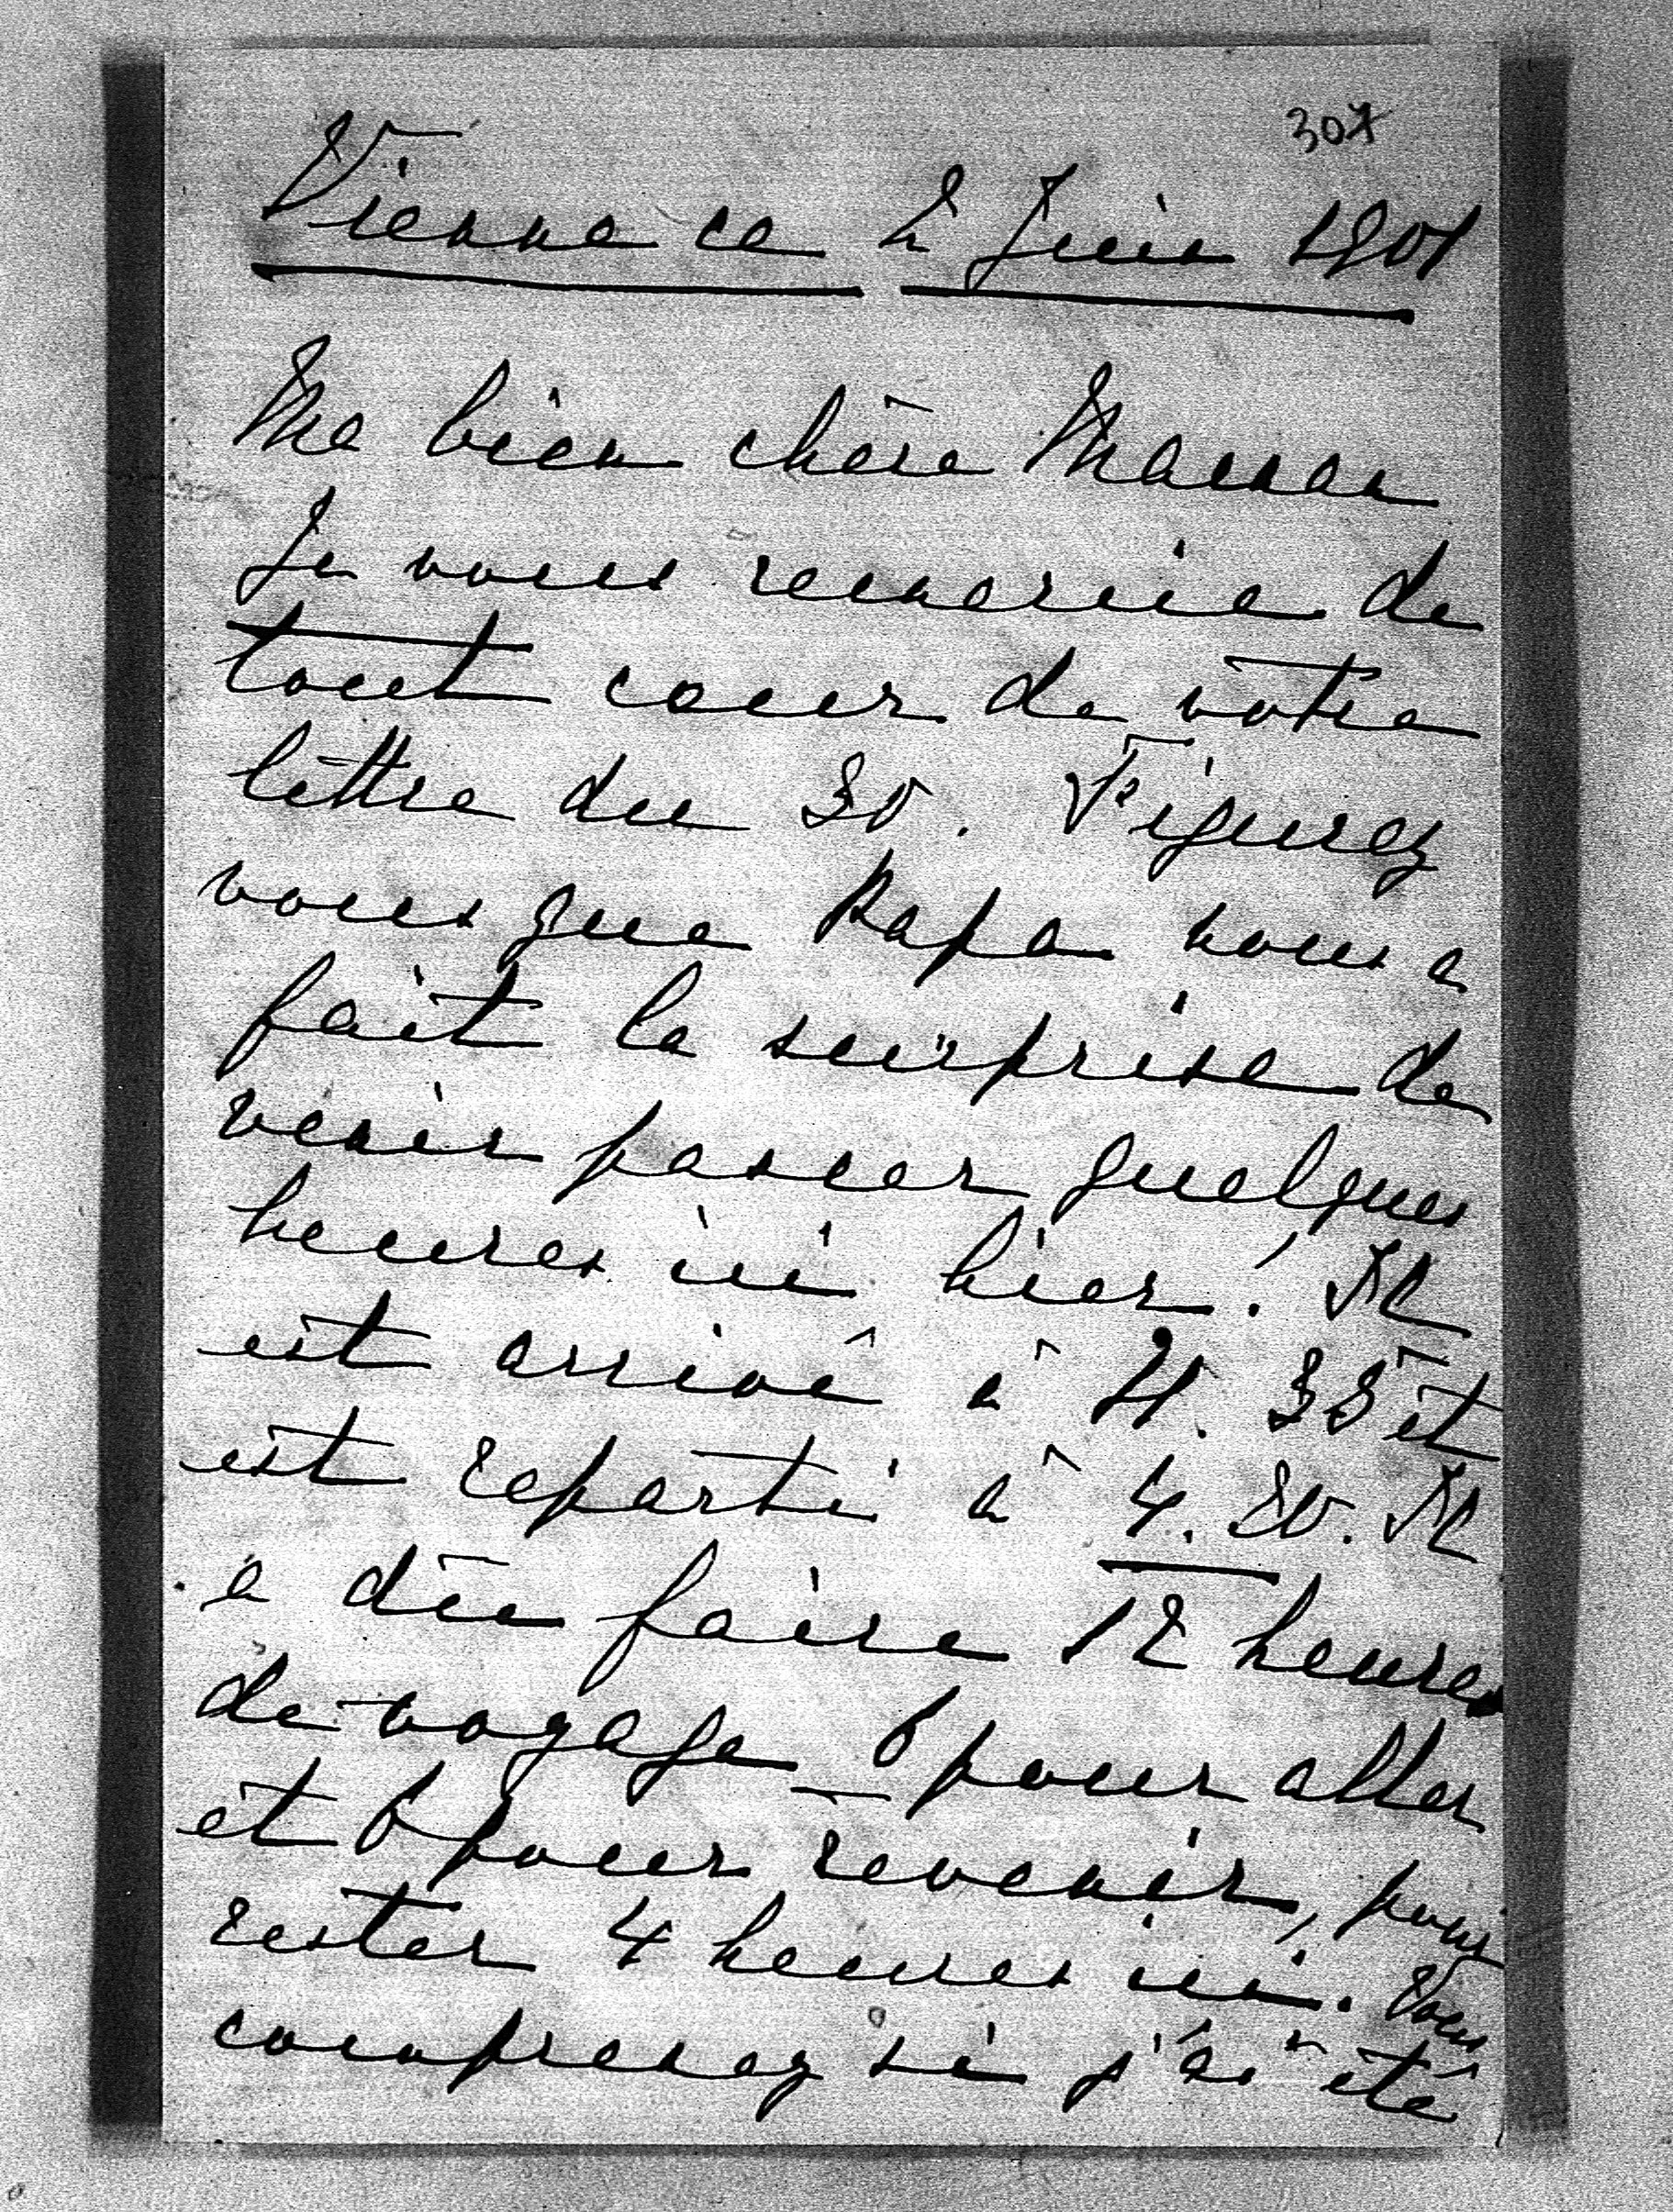 307
Vienne ce 2 Juin 1901
Ma bien chère Maman
Je vous remercie de
tout coeur de votre
lettre du 30. Figurez
vous que Papa nous a
fait la surprise de
venir passer quelques
heures ici hier! Il
est arrivé à 11. 35 et
est reparti à 4. 20. Il
a dû faire 12 heures
de voyage 6 pour aller
et 6 pour revenir, pour
rester 4 heures ici. Vous
comprenez si j'ai été